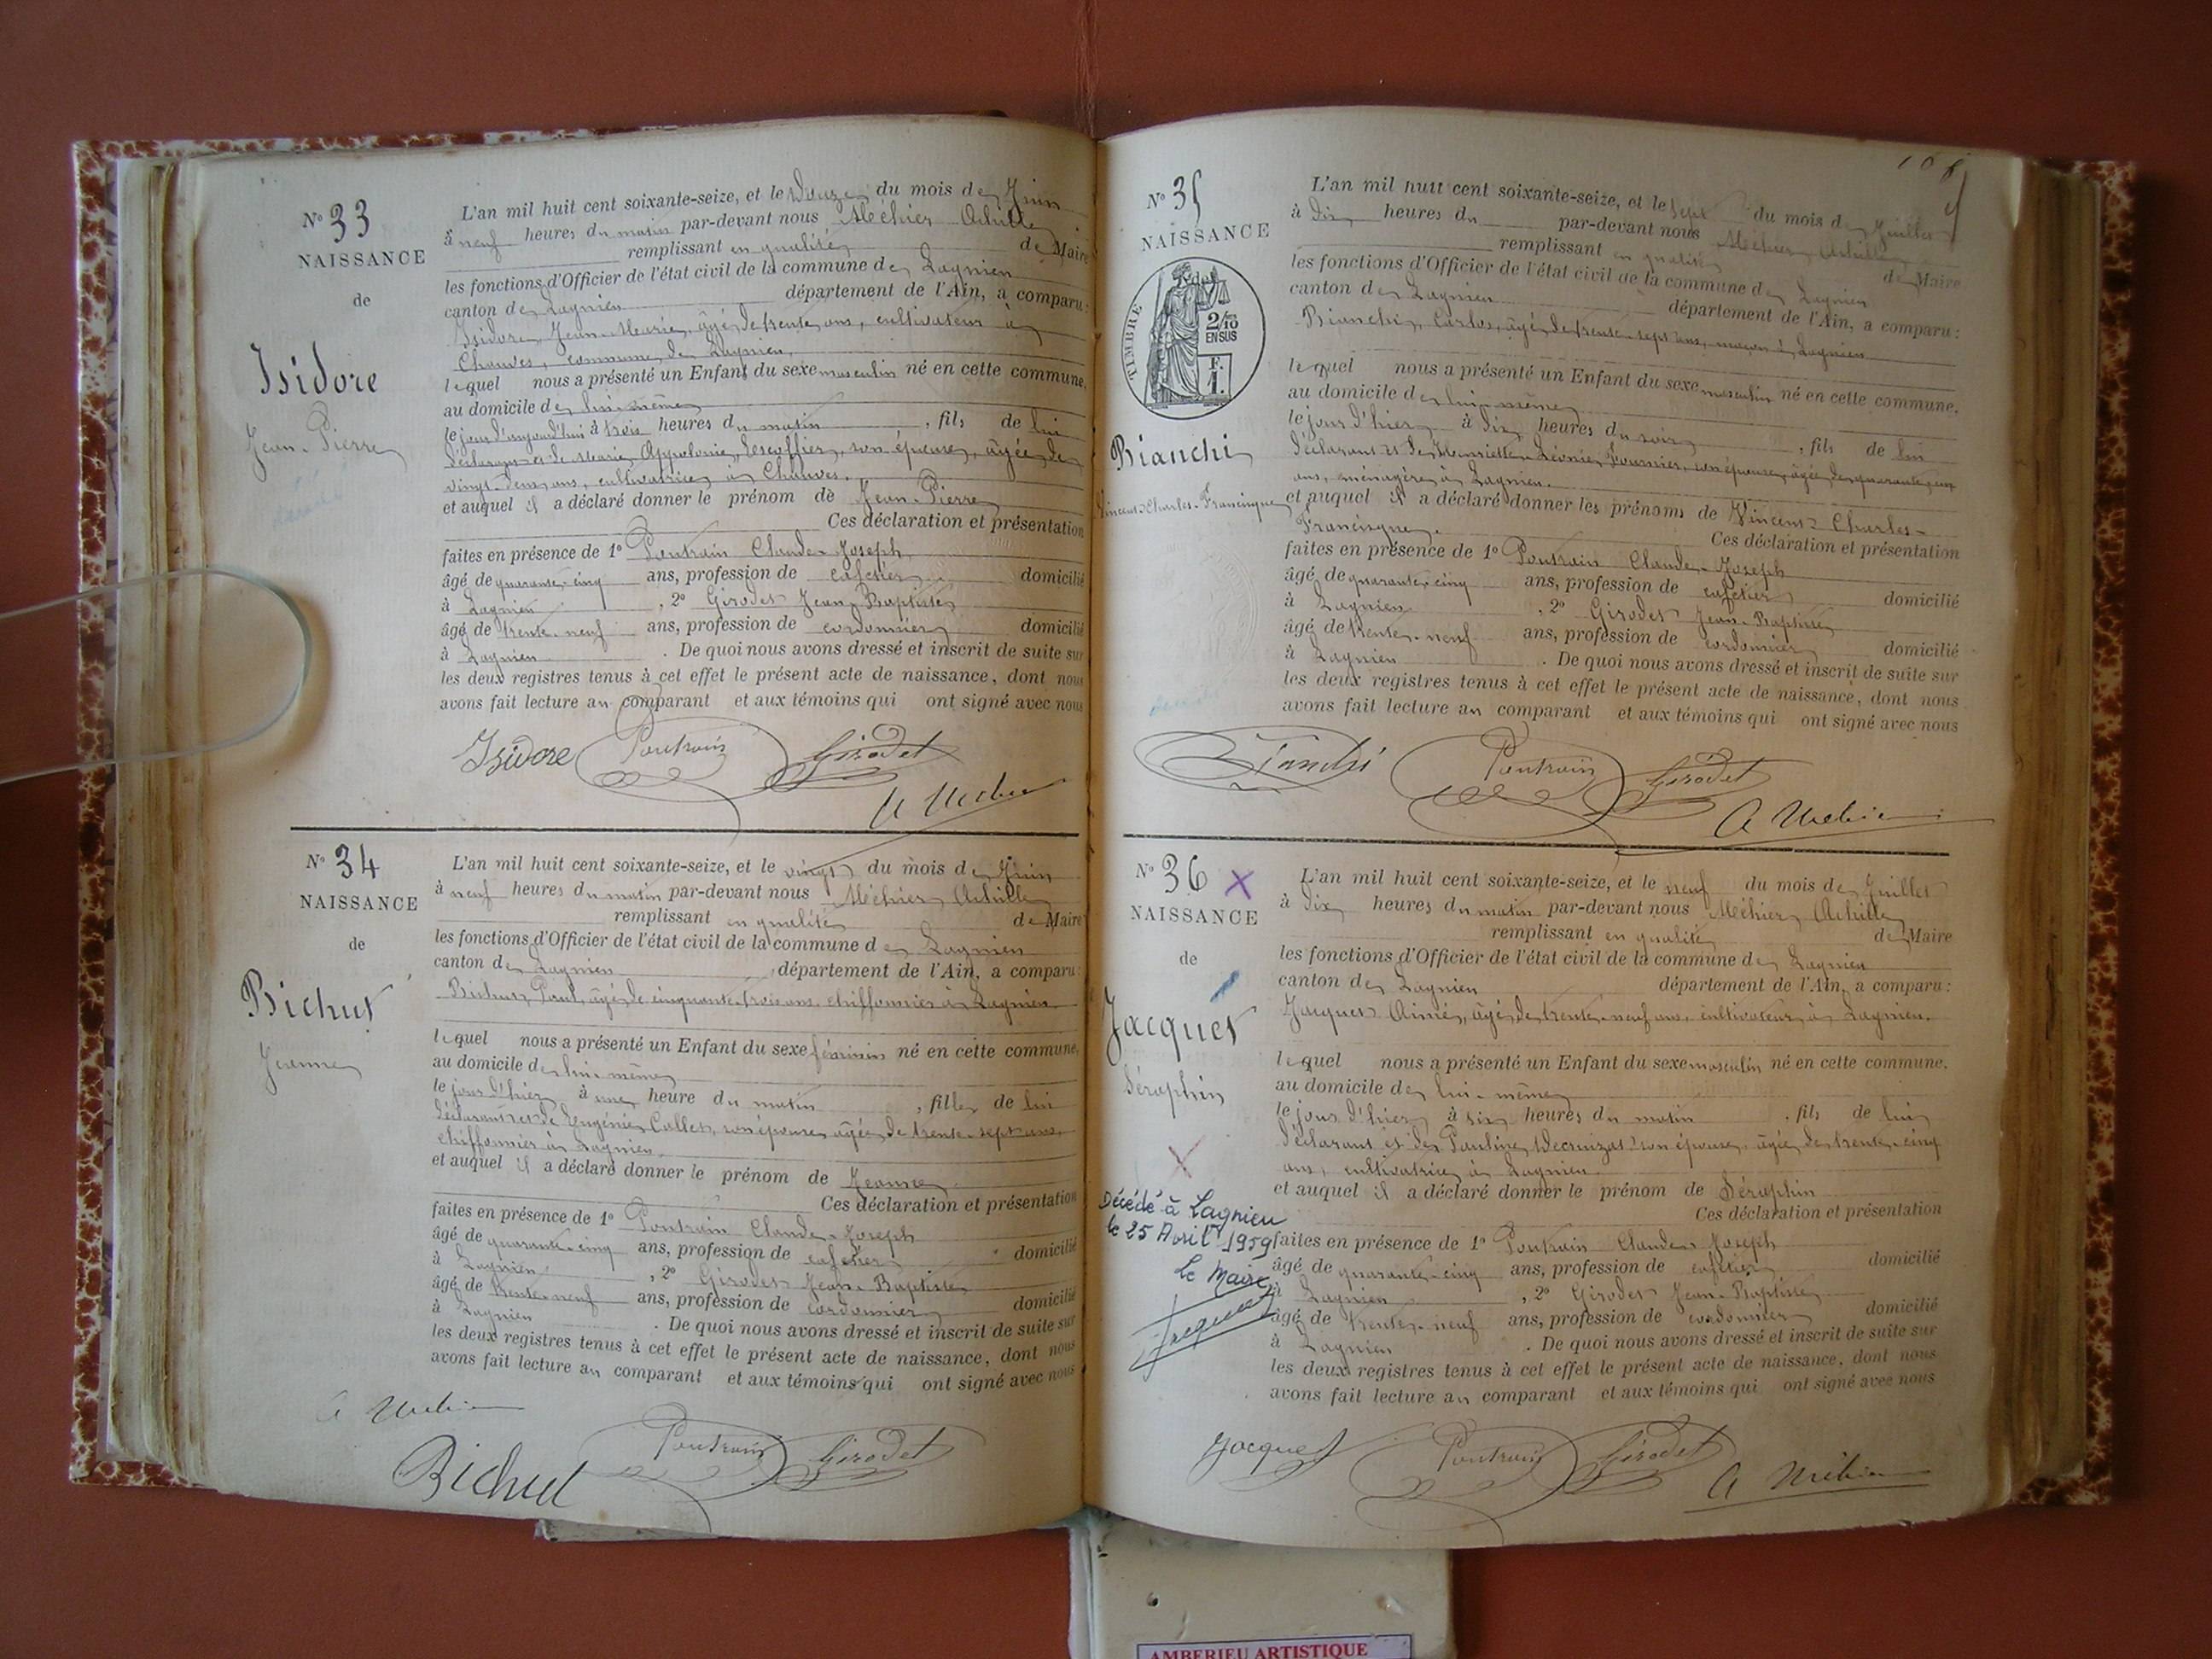 N° 33
NAISSANCE
de
Isidore
Jean-Pierre
L'an mil huit cent soixante-seize, et le Douze du mois de Juin
à neuf heures du matin par-devant nous Méhier Achille
remplissant en qualité de Maire
les fonctions d'Officier de l'état civil de la commune de Lagnieu
canton de Lagnieu département de l'Ain, a comparu :
Isidore, Jean-Marie, âgé de trente ans, cultivateur à
Chauves, commune de Lagnieu,
lequel nous a présenté un Enfant du sexe masculin né en cette commune,
au domicile de lui-même
le jour d'aujourd'hui à trois heures du matin , fils de lui
déclarant et de Marie Appolonie Lescoffier, son épouse, âgée de
vingt-deux ans, cultivatrice à Chauves.
et auquel il a déclaré donner le prénom de Jean-Pierre
Ces déclaration et présentation
faites en présence de 1° Poutrain Claude-Joseph
âgé de quarante-cinq ans, profession de cafetier domicilié
à Lagnieu , 2° Girodet Jean-Baptiste
âgé de trente-neuf ans, profession de cordonnier domicilié
à Lagnieu . De quoi nous avons dressé et inscrit de suite sur
les deux registres tenus à cet effet le présent acte de naissance, dont nous
avons fait lecture au comparant et aux témoins qui ont signé avec nous
Isidore Poutrain Girodet
A Mehier
N° 34
NAISSANCE
de
Bichut
Jeanne
L'an mil huit cent soixante-seize, et le vingt du mois de Juin
à neuf heures du matin par-devant nous Méhier Achille
remplissant en qualité de Maire
les fonctions d'Officier de l'état civil de la commune de Lagnieu
canton de Lagnieu département de l'Ain, a comparu :
Bichut Paul, âgé de cinquante-trois ans, chiffonnier à Lagnieu
lequel nous a présenté un Enfant du sexe féminin né en cette commune,
au domicile de lui-même
le jour d'hier à une heure du matin , fille de lui
déclarant et de Eugénie Collet, son épouse âgée de trente-sept ans,
chiffonnier à Lagnieu.
et auquel il a déclaré donner le prénom de Jeanne
Ces déclaration et présentation
faites en présence de 1° Poutrain Claude-Joseph
âgé de quarante-cinq ans, profession de cafetier domicilié
à Lagnieu , 2° Girodet Jean-Baptiste
âgé de trente-neuf ans, profession de cordonnier domicilié
à Lagnieu . De quoi nous avons dressé et inscrit de suite sur
les deux registres tenus à cet effet le présent acte de naissance, dont nous
avons fait lecture au comparant et aux témoins qui ont signé avec nous
A Mehier
Bichut Poutrain Girodet
108
N° 35
NAISSANCE
TIMBRE
2/10
EN SUS
F.
1.
Bianchi
Vincent-Charles-Francisque
L'an mil huit cent soixante-seize, et le sept du mois de Juillet
à dix heures du par-devant nous Méhier Achille
remplissant en qualité de Maire
les fonctions d'Officier de l'état civil de la commune de Lagnieu
canton de Lagnieu département de l'Ain, a comparu :
Bianchi, Carlos, âgé de trente-sept ans, maçon à Lagnieu
lequel nous a présenté un Enfant du sexe masculin né en cette commune,
au domicile de lui-même
le jour d'hier à dix heures du soir , fils de lui
déclarant et de Henriette-Léonie Fournier, son épouse, âgée de quarante-un
ans, ménagère à Lagnieu.
et auquel il a déclaré donner les prénoms de Vincent-Charles-
Francisque.
Ces déclaration et présentation
faites en présence de 1° Poutrain Claude-Joseph
âgé de quarante-cinq ans, profession de cafetier domicilié
à Lagnieu , 2° Girodet Jean-Baptiste
âgé de trente-neuf ans, profession de cordonnier domicilié
à Lagnieu . De quoi nous avons dressé et inscrit de suite sur
les deux registres tenus à cet effet le présent acte de naissance, dont nous
avons fait lecture au comparant et aux témoins qui ont signé avec nous
Bianchi Poutrain Girodet
A Mehier
N° 36
NAISSANCE
de
Jacquet
Séraphin
Décédé à Lagnieu
le 25 Avril 1959
Le Maire
L'an mil huit cent soixante-seize, et le neuf du mois de Juillet
à dix heures du matin par-devant nous Méhier Achille
remplissant en qualité de Maire
les fonctions d'Officier de l'état civil de la commune de Lagnieu
canton de Lagnieu département de l'Ain, a comparu :
Jacquet Aimé, âgé de trente-neuf ans, cultivateur à Lagnieu.
lequel nous a présenté un Enfant du sexe masculin né en cette commune,
au domicile de lui-même
le jour d'hier à six heures du matin , fils de lui
déclarant et de Pauline Décruizat son épouse, âgée de trente-cinq
ans, cultivatrice à Lagnieu
et auquel il a déclaré donner le prénom de Séraphin
Ces déclaration et présentation
faites en présence de 1° Poutrain Claude-Joseph
âgé de quarante-cinq ans, profession de cafetier domicilié
à Lagnieu , 2° Girodet Jean-Baptiste
âgé de trente-neuf ans, profession de cordonnier domicilié
à Lagnieu . De quoi nous avons dressé et inscrit de suite sur
les deux registres tenus à cet effet le présent acte de naissance, dont nous
avons fait lecture au comparant et aux témoins qui ont signé avec nous
Jacquet Poutrain Girodet A Mehier
AMBERIEU ARTISTIQUE